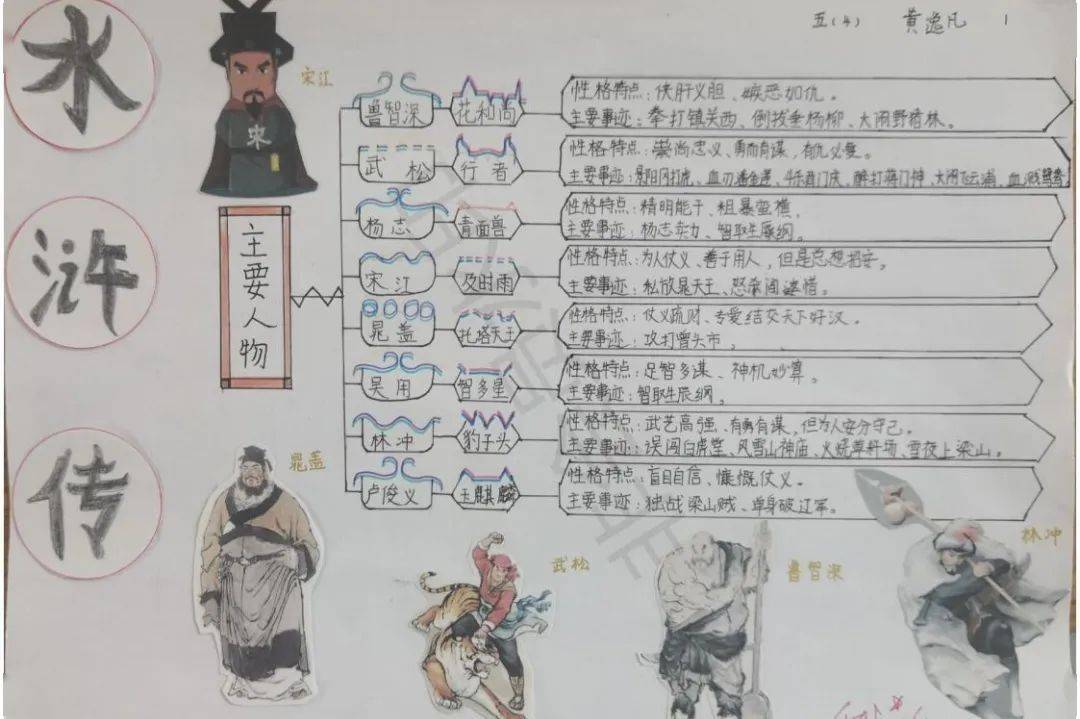 五(4) 黄逸凡 1
水
浒
传
宋江
主要人物
鲁智深 花和尚
性格特点：侠肝义胆、嫉恶如仇。
主要事迹：拳打镇关西、倒拔垂杨柳、大闹野猪林。
武松 行者
性格特点：崇尚忠义、勇而有谋，有仇必复。
主要事迹：景阳冈打虎、血刃潘金莲、斗杀西门庆、醉打蒋门神、大闹飞云浦、血溅鸳鸯
杨志 青面兽
性格特点：精明能干、粗暴蛮横。
主要事迹：杨志卖刀、智取生辰纲。
宋江 及时雨
性格特点：为人仗义、善于用人，但是总想招安。
主要事迹：私放晁天王、怒杀阎婆惜。
晁盖 托塔天王
性格特点：仗义疏财、专爱结交天下好汉。
主要事迹：攻打曾头市。
吴用 智多星
性格特点：足智多谋、神机妙算。
主要事迹：智取生辰纲。
林冲 豹子头
性格特点：武艺高强、有勇有谋，但为人安分守己。
主要事迹：误闯白虎堂、风雪山神庙、火烧草料场、雪夜上梁山。
卢俊义 玉麒麟
性格特点：盲目自信、慷慨仗义。
主要事迹：独战梁山贼、单身破辽军。
晁盖
武松
鲁智深
林冲